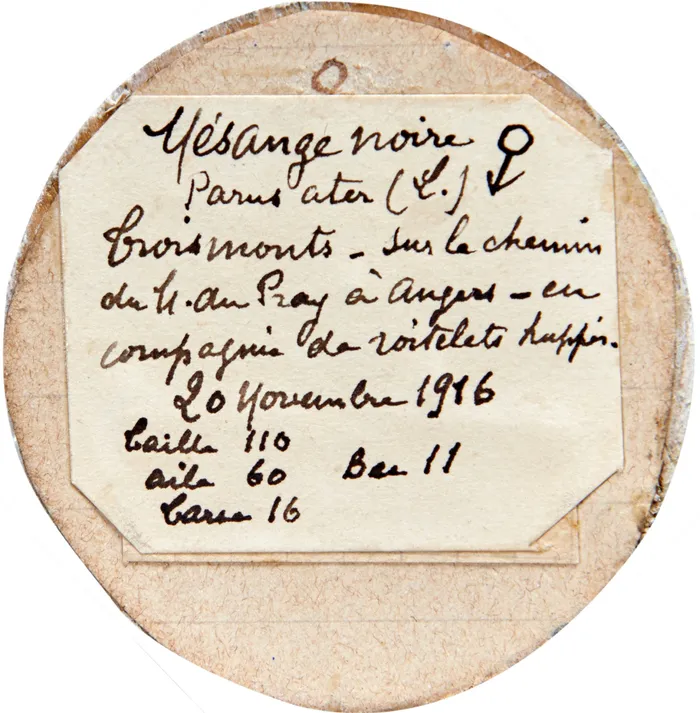 Mésange noire ♀
Parus ater (L.)
Troismonts - sur le chemin
du M. du Pray à Angers - en
compagnie de roitelets huppés.
20 Novembre 1916
Taille 110
aile 60 Bec 11
Tarse 16